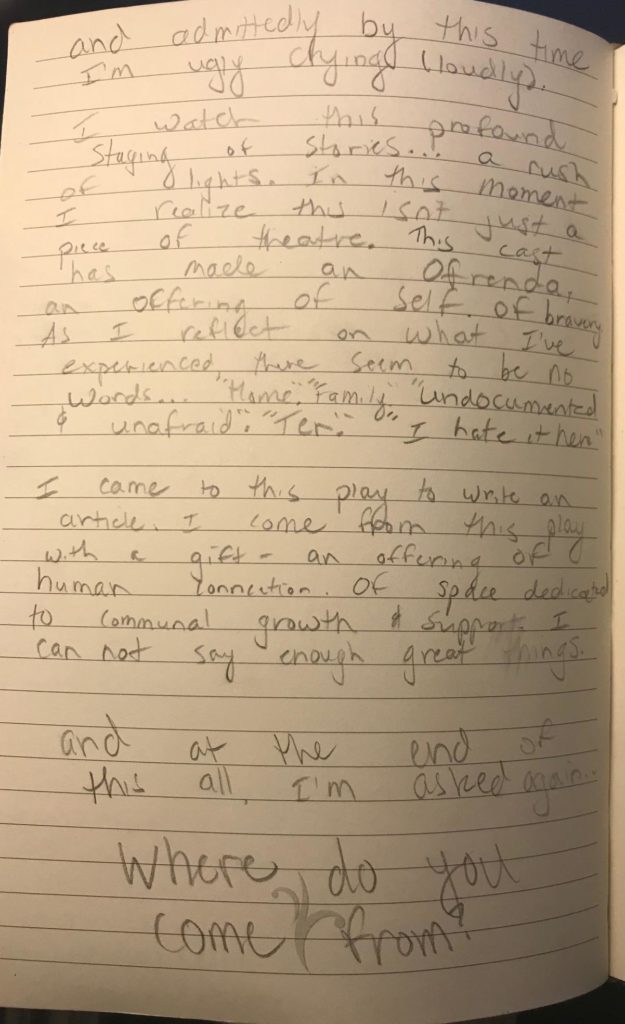 and admittedly by this time
I'm ugly crying (loudly).
I watch this profound
staging of stories... a rush
of lights. In this moment
I realize this isn't just a
piece of theatre. This cast
has made an Ofrenda,
an offering of self. of bravery
As I reflect on what I've
experienced, there seem to be no
words... "Home". "Family" "undocumented
& unafraid". "Ter". "I hate it here"
I came to this play to write an
article. I come from this play
with a gift - an offering of
human connection. Of space dedicated
to communal growth & support. I
can not say enough great things.
and at the end of
this all, I'm asked again...
Where do you
come from?